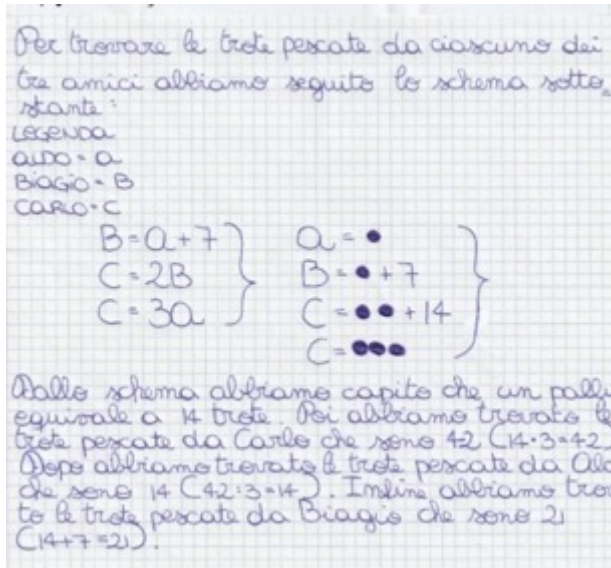 Per trovare le trote pescate da ciascuno dei
tre amici abbiamo seguito lo schema sotto
stante:
LEGENDA
ALDO = a
BIAGIO = B
CARLO = C
B = a + 7
C = 2B
C = 3a
a = ●
B = ● + 7
C = ●● + 14
C = ●●●
Dallo schema abbiamo capito che un palli
equivale a 14 trote. Poi abbiamo trovato le
trote pescate da Carlo che sono 42 (14·3=42)
Dopo abbiamo trovato le trote pescate da Al
che sono 14 (42:3=14). Infine abbiamo tro
to le trote pescate da Biagio che sono 21
(14+7=21).